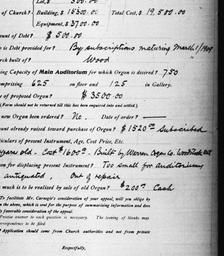 Lot, $ 500.00
of Church? Building, $ 1500.00 Total Cost, $ 19,500.00
Equipment, $ 3700.00
ount of Debt? $ 500.00
is Debt provided for? By subscriptions maturing March 1/1909
rch built of? Wood
ing Capacity of Main Auditorium for which Organ is desired? 750
omprising 625 on floor and 125 in Gallery.
of proposed Organ? $ 3500.00
(Form should not be returned till this has been inquired into and settled.)
new Organ been Ordered? No. Date of order?
ount already raised toward purchase of Organ? $ 1520.00 Subscribed
iculars of present Instrument, Age, Cost Price, Etc.
years old. Cost $1600.00. Built by Warren Organ Co. Woodstock Ont
son for displacing present Instrument? Too small for auditorium
antiquated, Out of repair
much is to be realized by sale of old Organ? $200.00 Cash
To facilitate Mr. Carnegie's consideration of your appeal, will you oblige by
the above, which is used for the purpose of summarizing information and does
ly favorable consideration of the appeal.
answer to each question is necessary. The testing of blanks may
correspondence to be ignored.
Application should come from Church authorities and not from private
Respectfully,